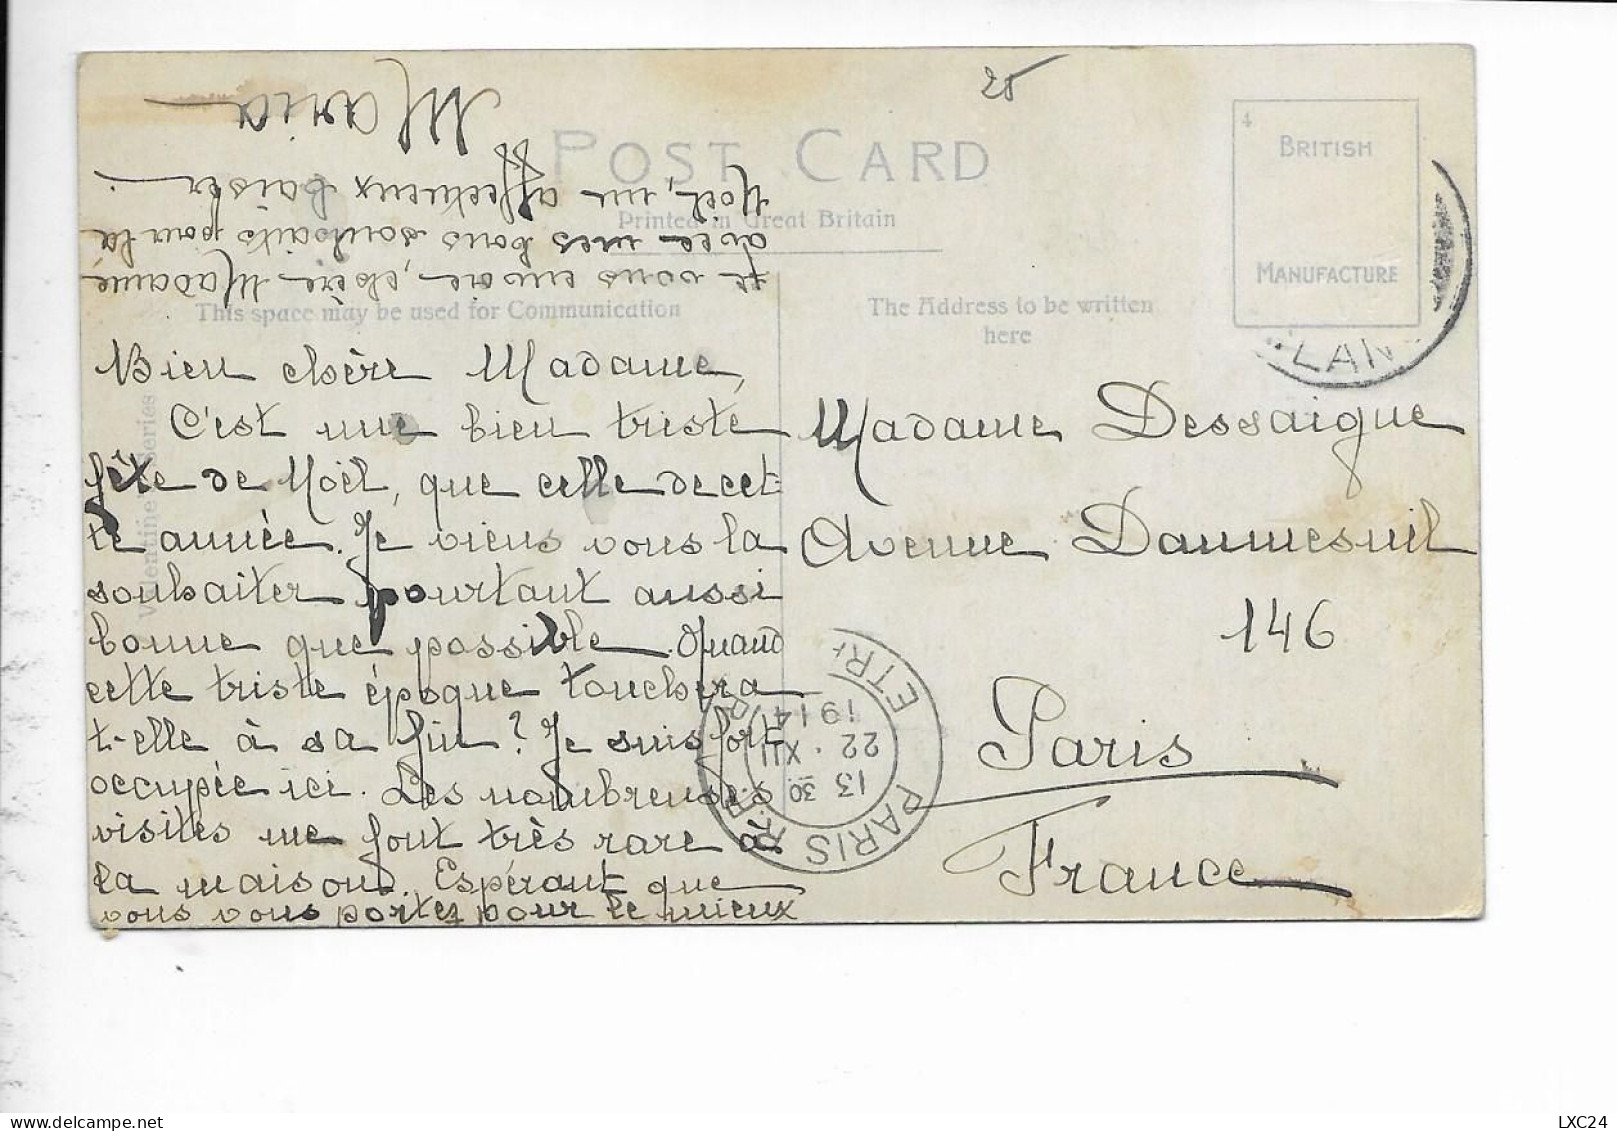 25
POST CARD
Printed in Great Britain
This space may be used for Communication
The Address to be written
here
4
BRITISH
MANUFACTURE
LAN
Valentine Series
Bien chère Madame,
C'est une bien triste
fête de Noël, que celle de cet-
te année. Je viens vous la
souhaiter pourtant aussi
bonne que possible. Quand
cette triste époque touchera
t-elle à sa fin? Je suis fort
occupée ici. Les nombreuses
visites me font très rare à
la maison. Espérant que
vous vous portez pour le mieux
je vous envoie, chère Madame
avec mes bons souhaits pour la
Noël, un affectueux baiser.
Maria
Madame Dessaigue
Avenue Daumesnil
146
Paris
France
PARIS R.P. ETR
13 30
22 XII
1914
LXC24